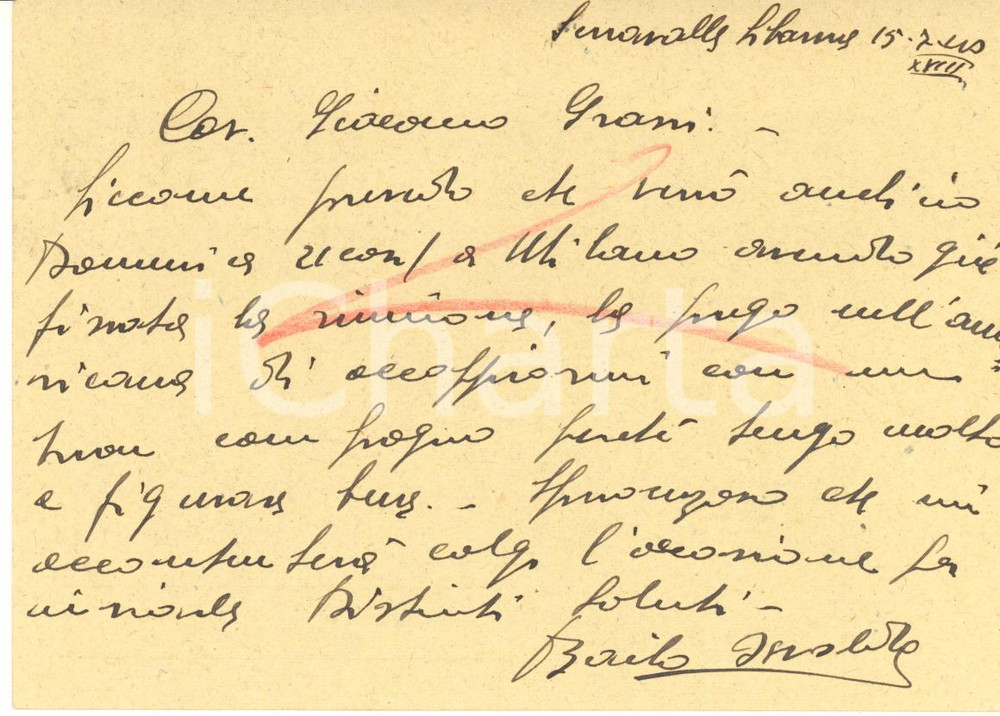 Serravalle Libarna 15-7-40
XVIII
Cav. Giacomo Grassi. -
Siccome prendo che verrò anch'io
Domenica a Milano avendo già
fissata la riunione, la prego nell'am
ricana di accoppiarmi con un
buon compagno perché tengo molto
a figurare bene. - Speranzoso che mi
accontenterà colgo l'occasione per
inviarle Distinti Saluti -
Baito
iCharta